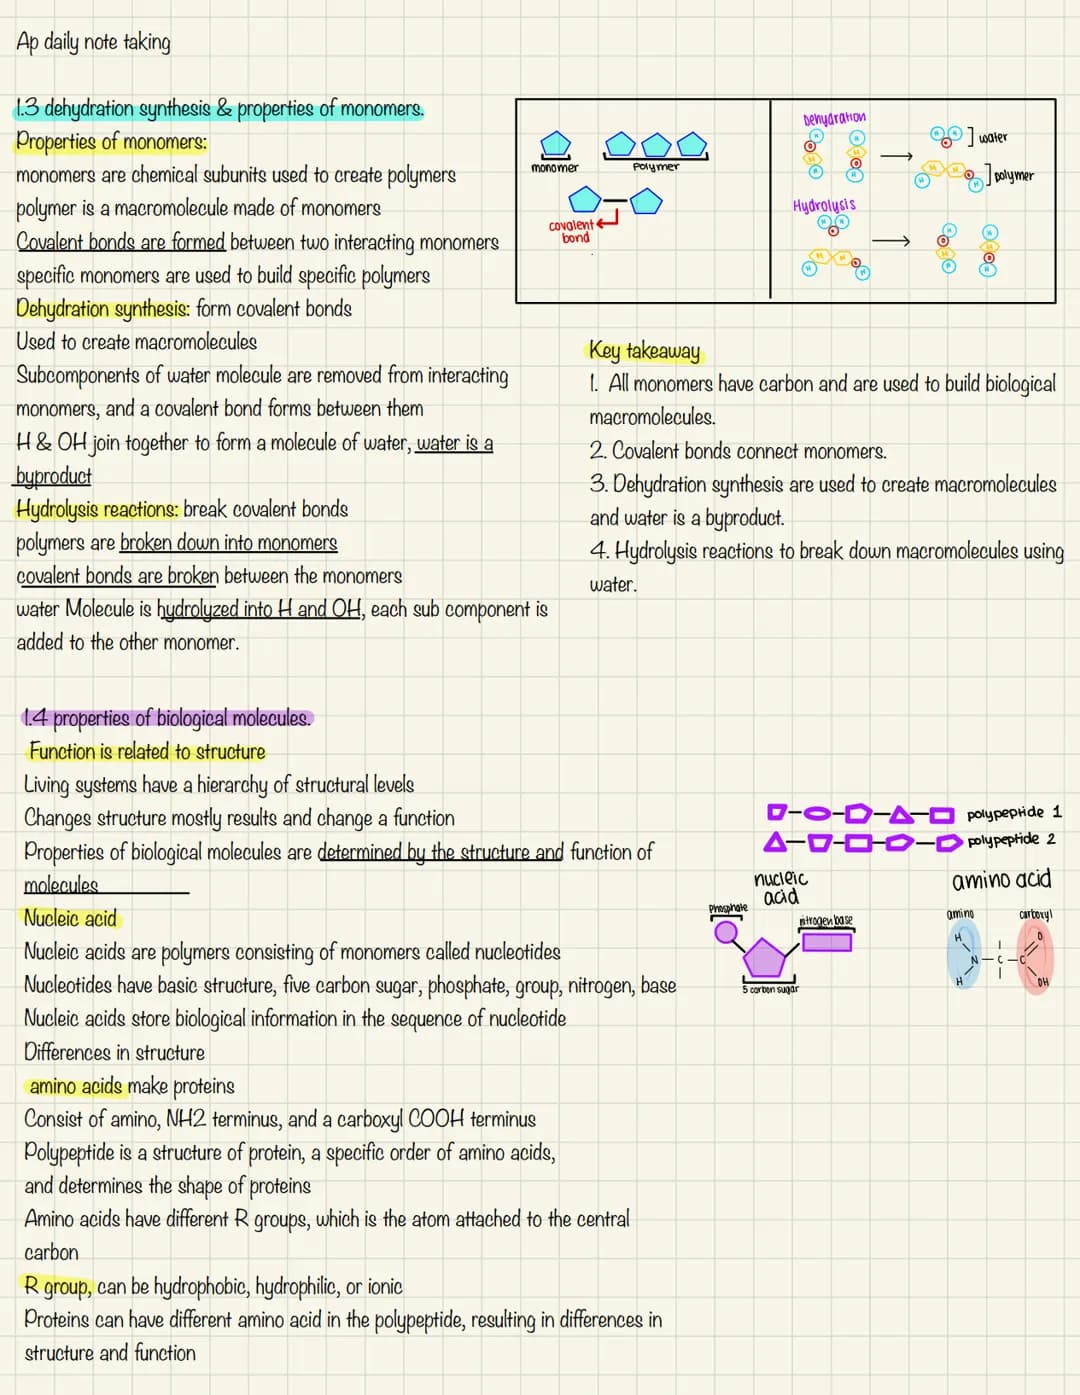 Ap daily note taking
1.3 dehydration synthesis & properties of monomers.
Properties of monomers:
monomers are chemical subunits used to create polymers
polymer is a macromolecule made of monomers
Covalent bonds are formed between two interacting monomers
specific monomers are used to build specific polymers
Dehydration synthesis: form covalent bonds
Used to create macromolecules
Subcomponents of water molecule are removed from interacting
monomers, and a covalent bond forms between them
H & OH join together to form a molecule of water, water is a
byproduct
Hydrolysis reactions: break covalent bonds
polymers are broken down into monomers
covalent bonds are broken between the monomers
water Molecule is hydrolyzed into H and OH, each sub component is
added to the other monomer.
monomer
Polymer
covalent
bond
Dehydration
H
H
O
M
M
O
H
H
H H
O
water
M M O
H
H
polymer
Hydrolysis
H H
O
M M O
H
H
H
H
O
M
M
O
H
H
Key takeaway
1. All monomers have carbon and are used to build biological
macromolecules.
2. Covalent bonds connect monomers.
3. Dehydration synthesis are used to create macromolecules
and water is a byproduct.
4. Hydrolysis reactions to break down macromolecules using
water.
1.4 properties of biological molecules.
Function is related to structure
Living systems have a hierarchy of structural levels
Changes structure mostly results and change a function
Properties of biological molecules are determined by the structure and function of
molecules
Nucleic acid
Nucleic acids are polymers consisting of monomers called nucleotides
Nucleotides have basic structure, five carbon sugar, phosphate, group, nitrogen, base
Nucleic acids store biological information in the sequence of nucleotide
Differences in structure
amino acids make proteins
Consist of amino, NH2 terminus, and a carboxyl COOH terminus
Polypeptide is a structure of protein, a specific order of amino acids,
and determines the shape of proteins
Amino acids have different R groups, which is the atom attached to the central
carbon
R group, can be hydrophobic, hydrophilic, or ionic
Proteins can have different amino acid in the polypeptide, resulting in differences in
structure and function
polypeptide 1
polypeptide 2
nucleic
acid
Phosphate
nitrogen base
5 carbon sugar
amino acid
amino
carboxyl
H
O
N-C-C
H
OH